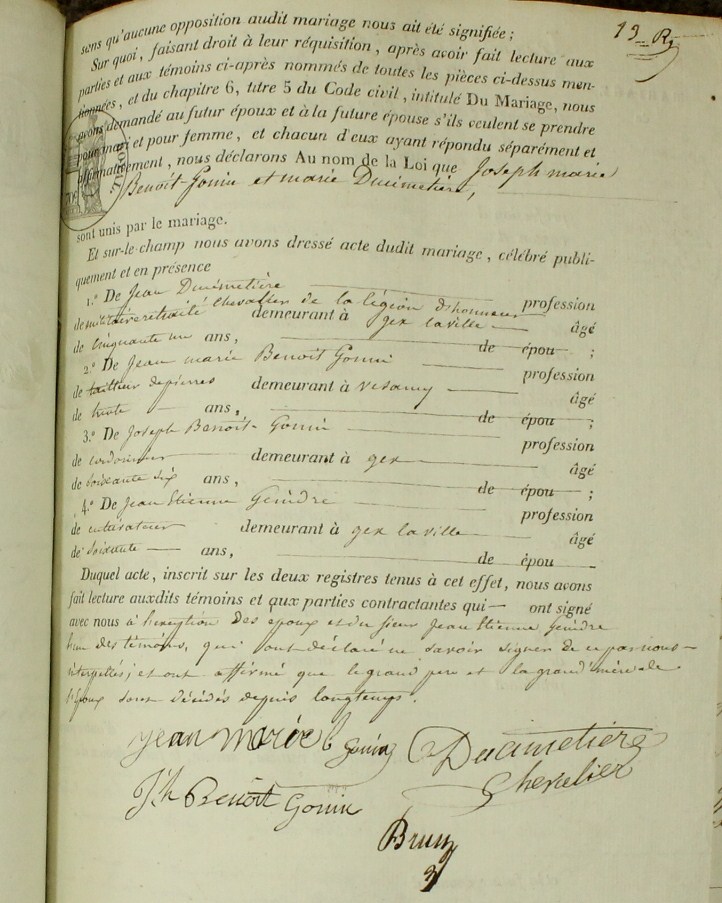 13 Rº
sans qu'aucune opposition audit mariage nous ait été signifiée ;
Sur quoi, faisant droit à leur réquisition, après avoir fait lecture aux
parties et aux témoins ci-après nommés de toutes les pièces ci-dessus men-
tionnées, et du chapitre 6, titre 5 du Code civil, intitulé Du Mariage, nous
avons demandé au futur époux et à la future épouse s'ils veulent se prendre
pour mari et pour femme, et chacun d'eux ayant répondu séparément et
affirmativement, nous déclarons Au nom de la Loi que Joseph marie
Benoit-Gonin et marie Ducimetière,
sont unis par le mariage.
Et sur-le-champ nous avons dressé acte dudit mariage, célébré publi-
quement et en présence
1.º De Jean Ducimetière profession
de militaire retraité chevalier de la légion d'honneur
demeurant à gex la ville âgé
de Cinquante un ans, de épou ;
2.º De Jean marie Benoit Gonin profession
de tailleur de pierres demeurant à vesancy âgé
de trente ans, de épou ;
3.º De Joseph Benoit-Gonin profession
de cordonnier demeurant à gex âgé
de soixante six ans, de épou ;
4.º De Jean Etienne Genidre profession
de cultivateur demeurant à gex la ville âgé
de soixante ans, de épou
Duquel acte, inscrit sur les deux registres tenus à cet effet, nous avons
fait lecture auxdits témoins et aux parties contractantes qui ont signé
avec nous à l'exception des epoux et du sieur Jean Etienne Genidre
l'un des témoins, qui ont déclaré ne savoir signer de ce par nous
interpellés ; et ont affirmé que le grand pere et la grand mère de
l'Epoux sont décédés depuis longtemps.
jean marie b Gonin Ducimetière
Chevalier
Jh Benoit Gonin
Brun